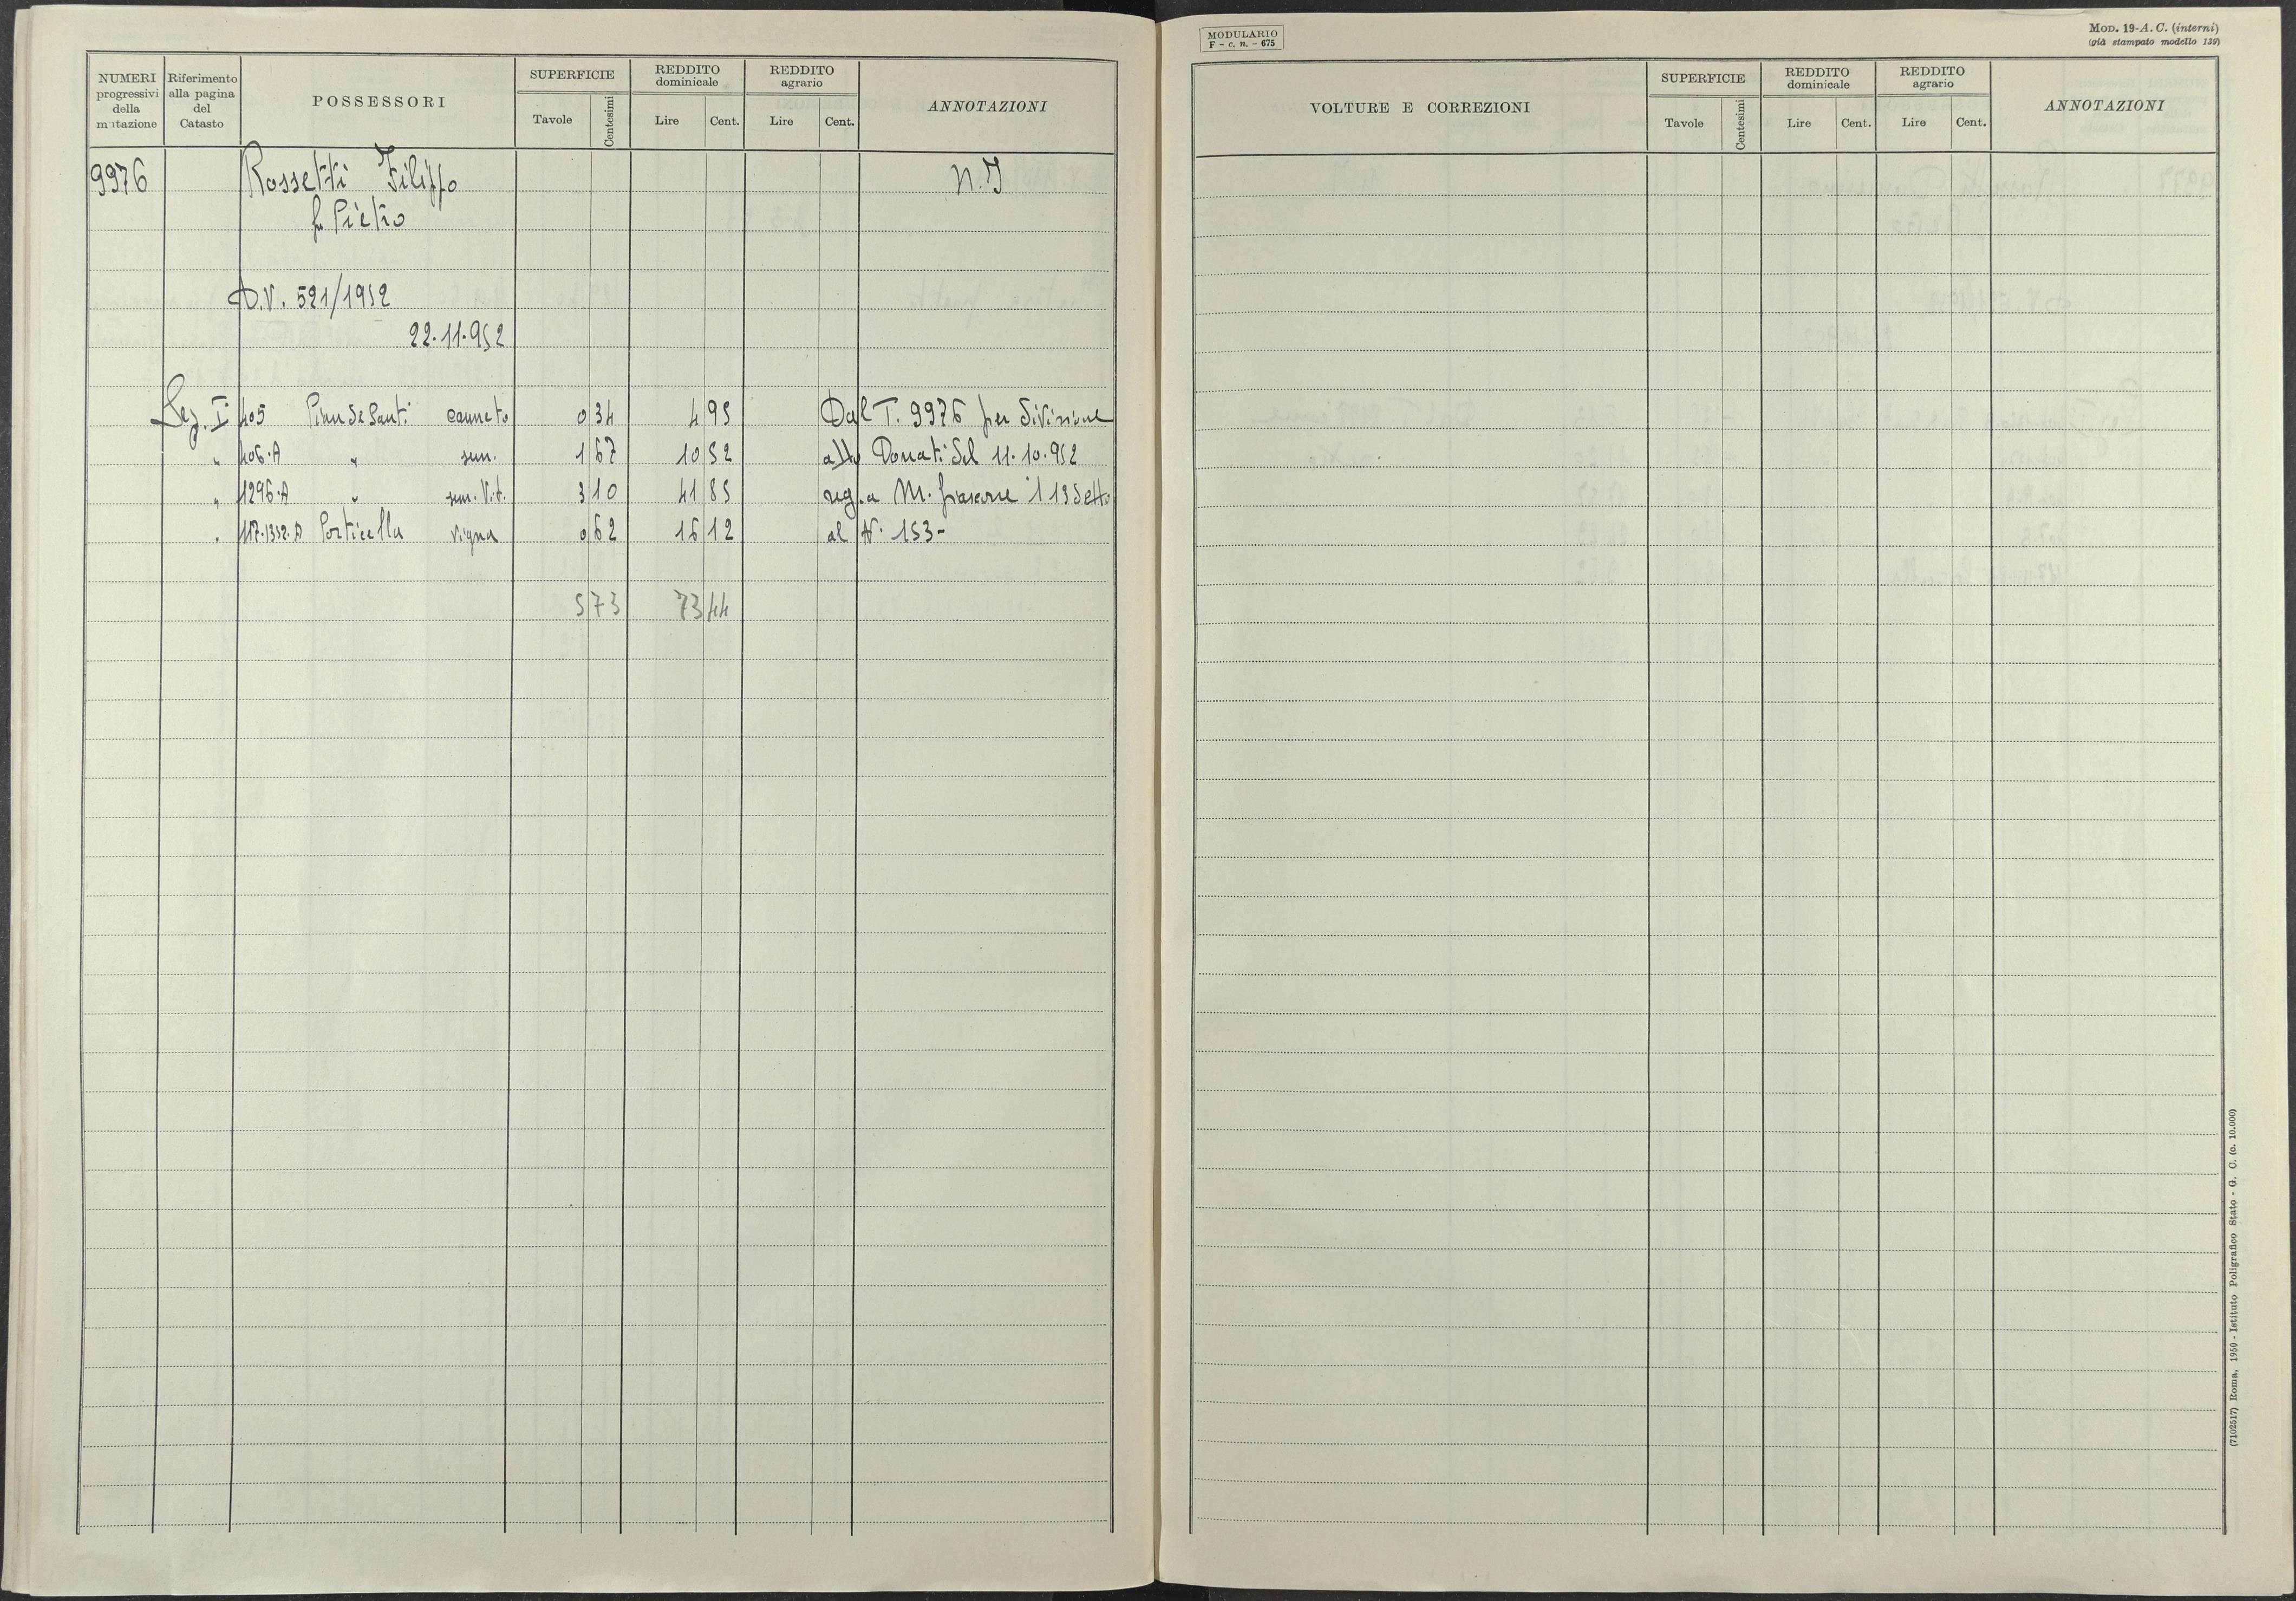 NUMERI progressivi della mutazione
Riferimento alla pagina del Catasto
POSSESSORI
SUPERFICIE
Tavole Centesimi
REDDITO dominicale
Lire Cent.
REDDITO agrario
Lire Cent.
ANNOTAZIONI
9976 Rossetti Filippo N.I
fu Pietro
D.V. 521/1952
22.11.952
Sez. I 405 canneto 0 34 4 95 Dal T. 9976 per divisione
" 406.A " sem. 1 67 10 52 atto Donati del 11.10.952
" 1296.A " sem. Vit. 3 10 41 85 reg. a M. il 13 detto
" 117.1352.A Porticella vigna 0 62 16 12 al N. 153-
5 73 73 44
MODULARIO
F - c. n. - 675
MOD. 19-A. C. (interni)
(già stampato modello 139)
VOLTURE E CORREZIONI
SUPERFICIE
Tavole Centesimi
REDDITO dominicale
Lire Cent.
REDDITO agrario
Lire Cent.
ANNOTAZIONI
(7102517) Roma, 1950 - Istituto Poligrafico Stato - G. C. (c. 10.000)